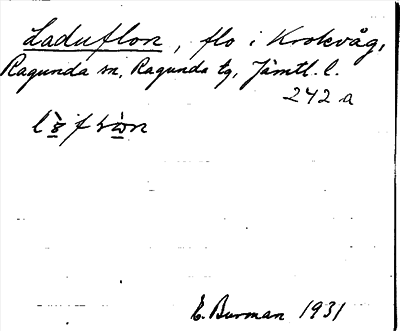 Laduflon, flo i Krokvåg,
Ragunda sn, Ragunda tg, Jämtl. l.
242 a
E. Burman 1931